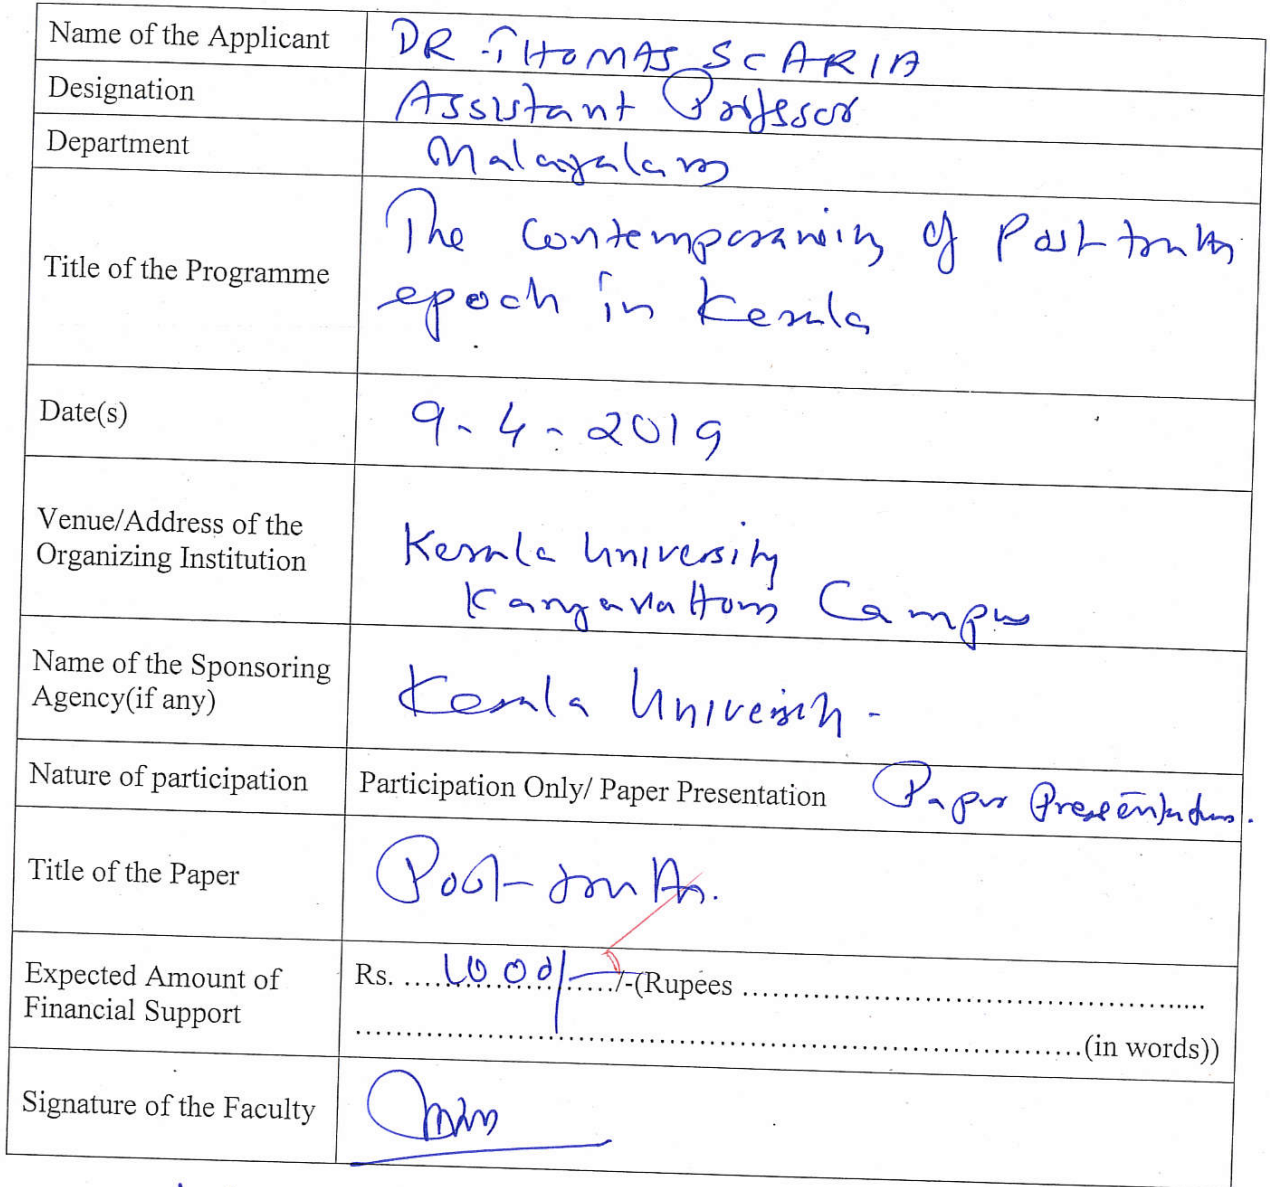 Name of the Applicant DR. THOMAS SCARIA
Designation Assistant Professor
Department Malayalam
Title of the Programme The contemporaneity of Post-truth
epoch in Kerala
Date(s) 9-4-2019
Venue/Address of the
Organizing Institution
Kerala University
Kariavattom Campus
Name of the Sponsoring
Agency(if any)
Kerala University -
Nature of participation Participation Only/ Paper Presentation Paper Presentation.
Title of the Paper Post-truth.
Expected Amount of
Financial Support
Rs. .... 1000/- ..../-(Rupees ..........................................
..........................................................................(in words))
Signature of the Faculty